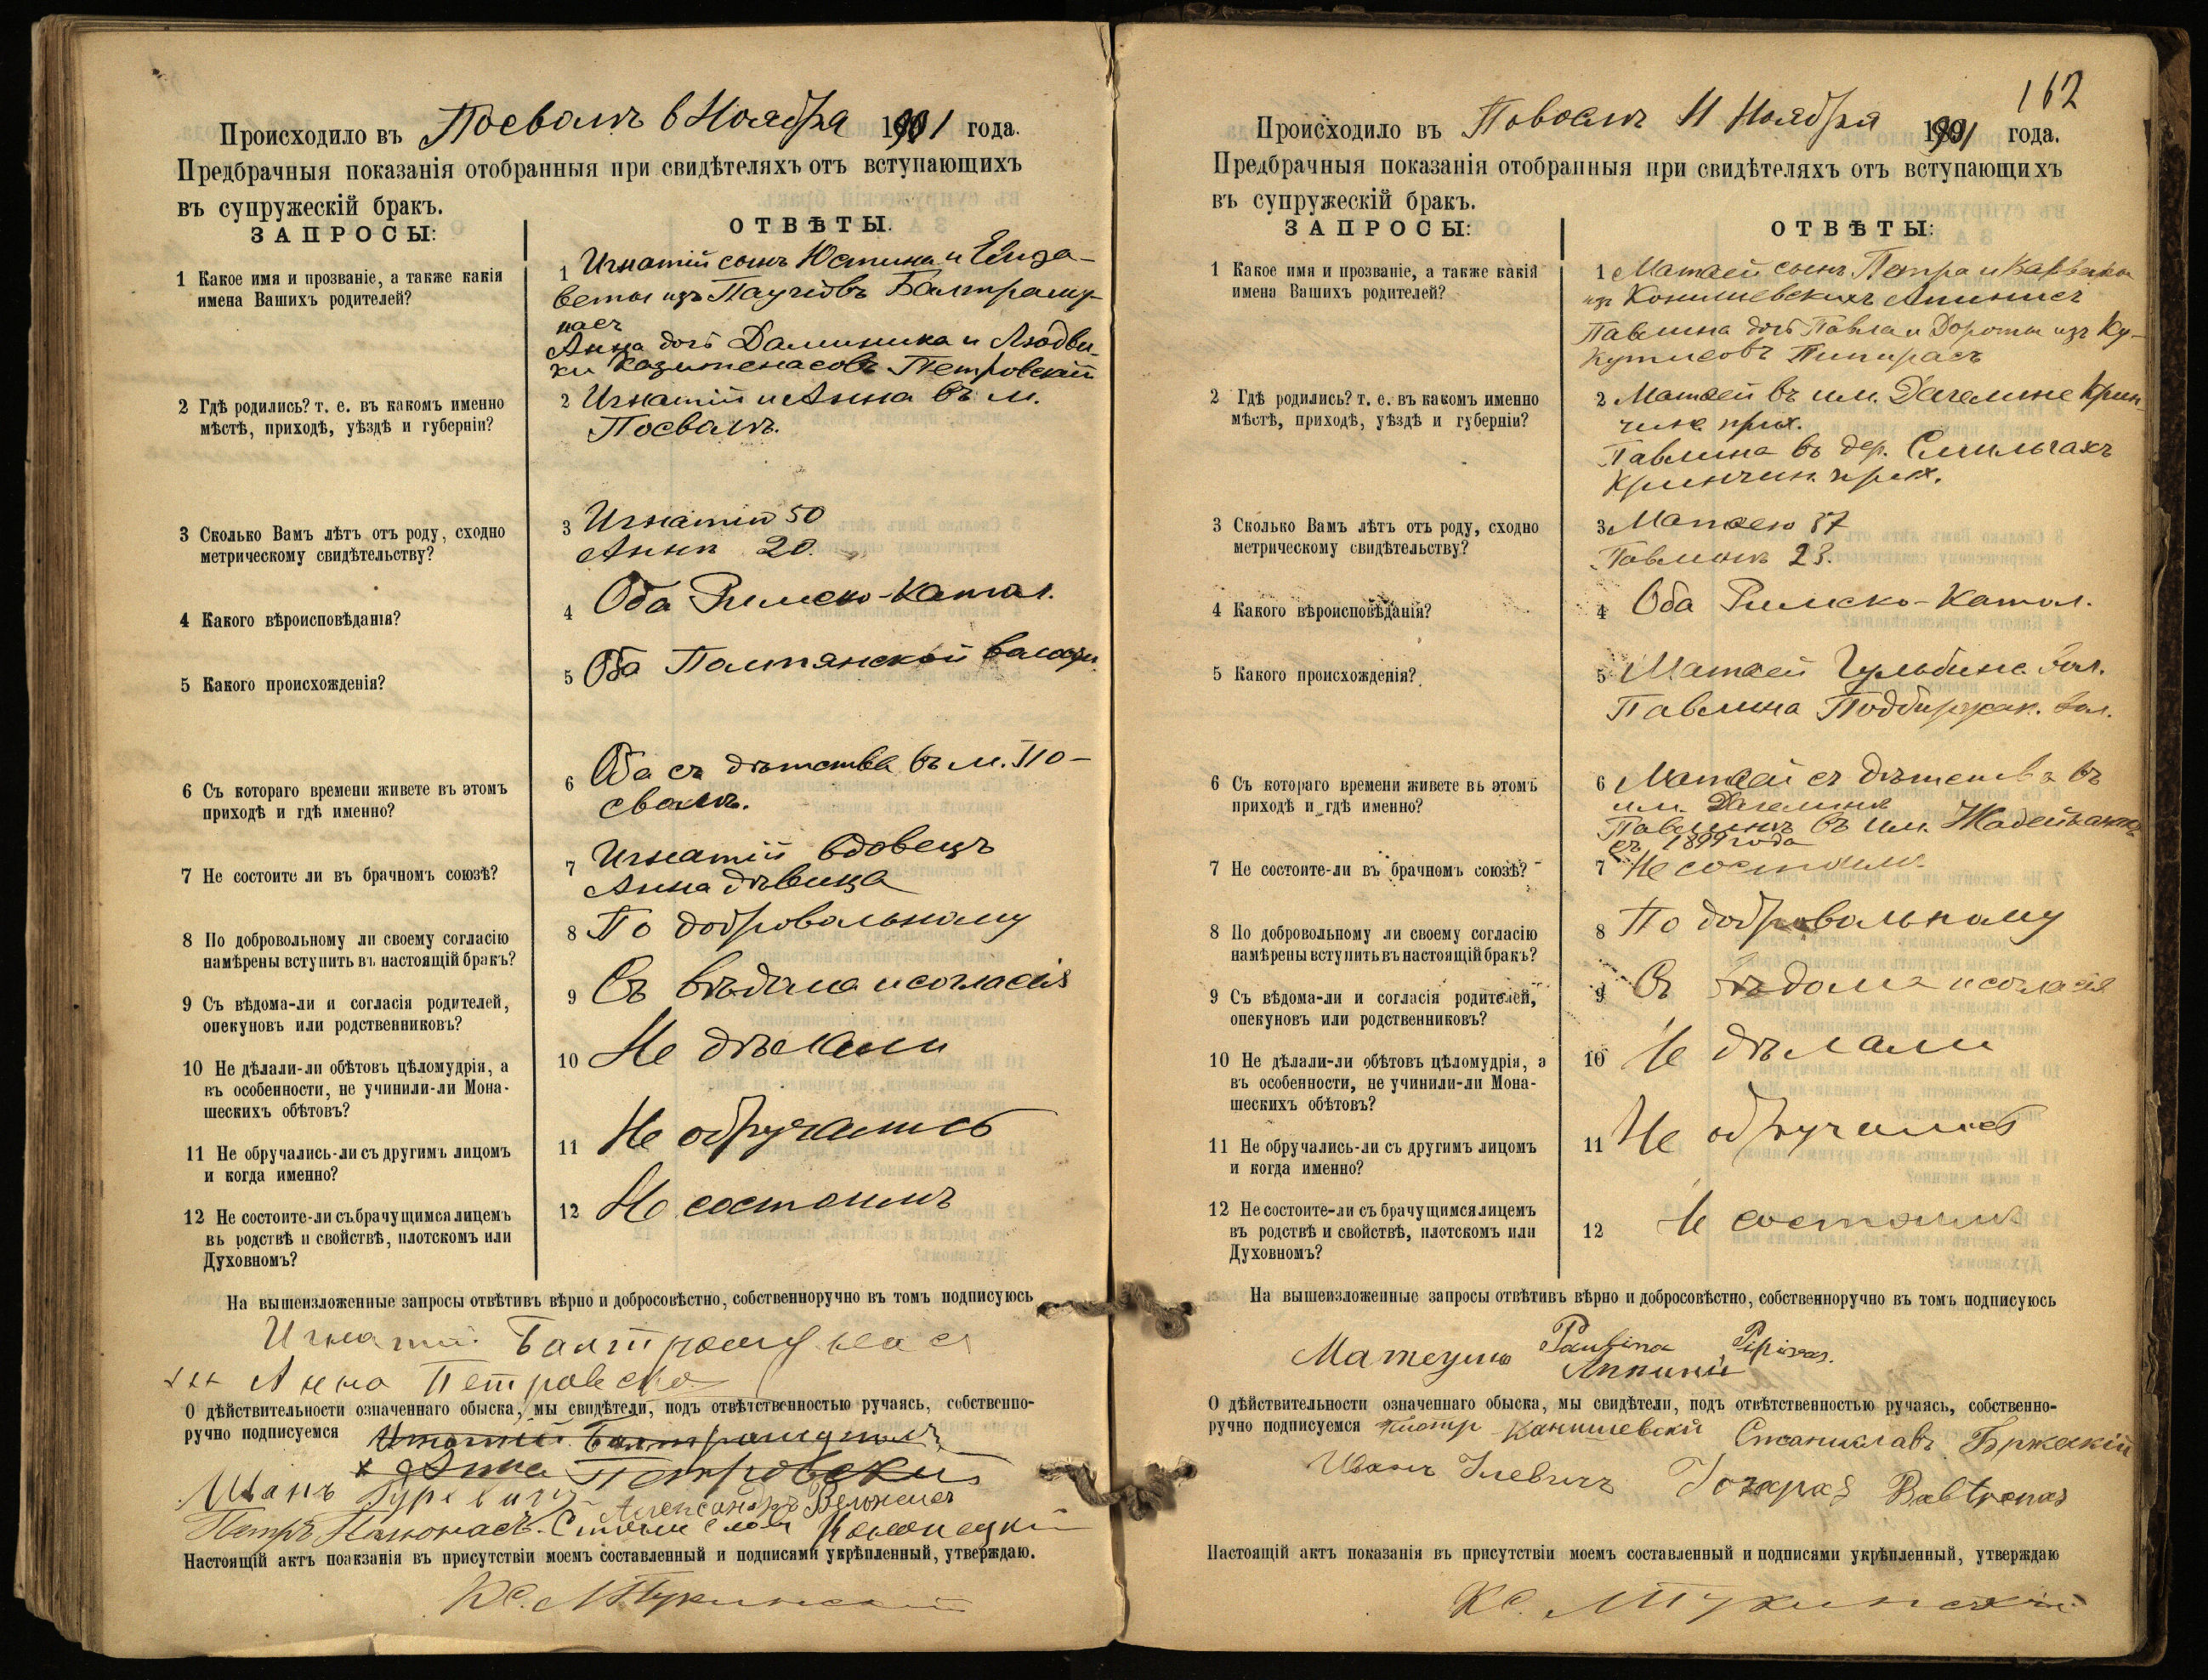 Происходило въ Посволѣ 6 Ноября 1901 года.
Предбрачныя показанія отобранныя при свидѣтеляхъ отъ вступающихъ
въ супружескій бракъ.
ЗАПРОСЫ:
ОТВѢТЫ.
1 Какое имя и прозваніе, а также какія
имена Вашихъ родителей?
1 Игнатій сынъ Юстина и Елиза-
веты изъ Балтраму-
насъ
Анна дочь Даминика и Людви-
ки Петровскій
2 Гдѣ родились? т. е. въ какомъ именно
мѣстѣ, приходѣ, уѣздѣ и губерніи?
2 Игнатій и Анна въ м.
Посволѣ.
3 Сколько Вамъ лѣтъ отъ роду, сходно
метрическому свидѣтельству?
3 Игнатій 50
Анна 20.
4 Какого вѣроисповѣданія?
4 Оба Римско-Катол.
5 Какого происхожденія?
5 Оба
6 Съ котораго времени живете въ этомъ
приходѣ и гдѣ именно?
6 Оба съ дѣтства въ м. По-
сволѣ.
7 Не состоите ли въ брачномъ союзѣ?
7 Игнатій вдовецъ
Анна дѣвица
8 По добровольному ли своему согласію
намѣрены вступить въ настоящій бракъ?
8 По добровольному
9 Съ вѣдома-ли и согласія родителей,
опекуновъ или родственниковъ?
9 Съ вѣдома и согласія
10 Не дѣлали-ли обѣтовъ цѣломудрія, а
въ особенности, не учинили-ли Мона-
шескихъ обѣтовъ?
10 Не дѣлали
11 Не обручались-ли съ другимъ лицомъ
и когда именно?
11 Не обручались
12 Не состоите-ли съ брачущимся лицемъ
въ родствѣ и свойствѣ, плотскомъ или
Духовномъ?
12 Не состоимъ
На вышеизложенные запросы отвѣтивъ вѣрно и добросовѣстно, собственноручно въ томъ подписуюсь
Игнатій Балтрамунас
ххх Анна Петровска
О дѣйствительности означеннаго обыска, мы свидѣтели, подъ отвѣтственностью ручаясь, собственно-
ручно подписуемся
Анна Петровскій
Иванъ Гуревичъ Александръ
Петръ
Настоящій актъ поакзанія въ присутствіи моемъ составленный и подписями укрѣпленный, утверждаю.
Кс.
162
Происходило въ Поволѣ 11 Ноября 1901 года.
Предбрачныя показанія отобранныя при свидѣтеляхъ отъ вступающихъ
въ супружескій бракъ.
ЗАПРОСЫ:
ОТВѢТЫ:
1 Какое имя и прозваніе, а также какія
имена Вашихъ родителей?
1 Матѳей сынъ Петра и Варвары
изъ Конишевскихъ
Павлина дочь Павла и Дороты изъ Ку-
Пипирасъ
2 Гдѣ родились? т. е. въ какомъ именно
мѣстѣ, приходѣ, уѣздѣ и губерніи?
2 Матѳей въ им. Крин
чин. прих.
Павлина въ дер. Смильгахъ
Кринчин. прих.
3 Сколько Вамъ лѣтъ отъ роду, сходно
метрическому свидѣтельству?
3 Матѳею 37
Павлинѣ 23.
4 Какого вѣроисповѣданія?
4 Оба Римско-Катол.
5 Какого происхожденія?
5 Матѳей Гульбине. вол.
Павлина Подбиржан. вол.
6 Съ котораго времени живете въ этомъ
приходѣ и гдѣ именно?
6 Матѳей съ дѣтства въ
им.
въ им.
съ 1899 года
7 Не состоите-ли въ брачномъ союзѣ?
7 Не состоимъ
8 По добровольному ли своему согласію
намѣрены вступить въ настоящій бракъ?
8 По добровольному
9 Съ вѣдома-ли и согласія родителей,
опекуновъ или родственниковъ?
9 Съ вѣдома и согласія
10 Не дѣлали-ли обѣтовъ цѣломудрія, а
въ особенности, не учинили-ли Мона-
шескихъ обѣтовъ?
10 Не дѣлали
11 Не обручались-ли съ другимъ лицомъ
и когда именно?
11 Не обручались
12 Не состоите-ли съ брачущимся лицемъ
въ родствѣ и свойствѣ, плотскомъ или
Духовномъ?
12 Не состоимъ
На вышеизложенные запросы отвѣтивъ вѣрно и добросовѣстно, собственноручно въ томъ подписуюсь
Paulina Pipiras.
О дѣйствительности означеннаго обыска, мы свидѣтели, подъ отвѣтственностью ручаясь, собственно-
ручно подписуемся Канишевскій Станиславъ Бржескій
Иванъ
Настоящій актъ показанія въ присутствіи моемъ составленный и подписями укрѣпленный, утверждаю
Кс.